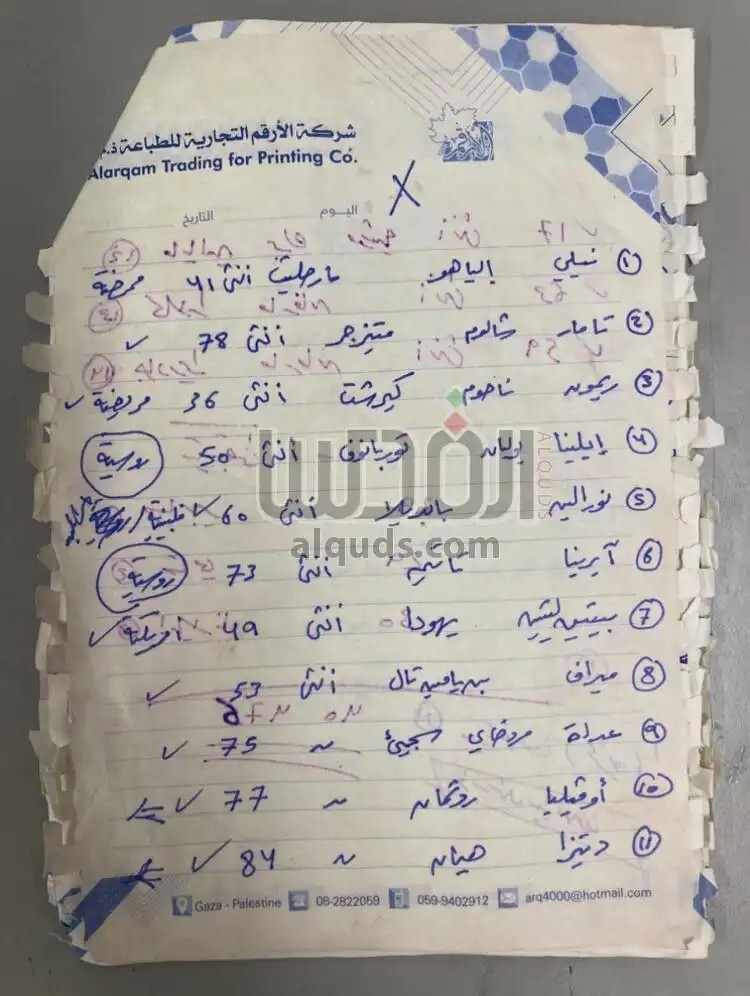 شركة الأرقم التجارية للطباعة ذ.م
Alarqam Trading for Printing Co.
اليوم التاريخ
① نيلي إلياهو مارجليت أنثى 41 ممرضة
② تامار شالوم متيزجر أنثى 78 ✓
③ ريمون ناحوم كيرشت أنثى 36 مريضة ✓
④ إيلينا يولان توربانوف أنثى 50 روسية
⑤ نورالين بانديلا أنثى 60 ✓ فلبينية /
⑥ آيرينا تاتي أنثى 73 روسية
⑦ يهودا أنثى 49 أمريكية ✓
⑧ ميراف تال أنثى 53 ✓
⑨ عداة مردخاي سجيئ ~ 75 ✓
⑩ أوفيليا روتمان ~ 77 ✓
⑪ ديتزا هيمان ~ 84 ✓
القدس
ALQUDS
alquds.com
Gaza - Palestine 08-2822059 059-9402912 arq4000@hotmail.com